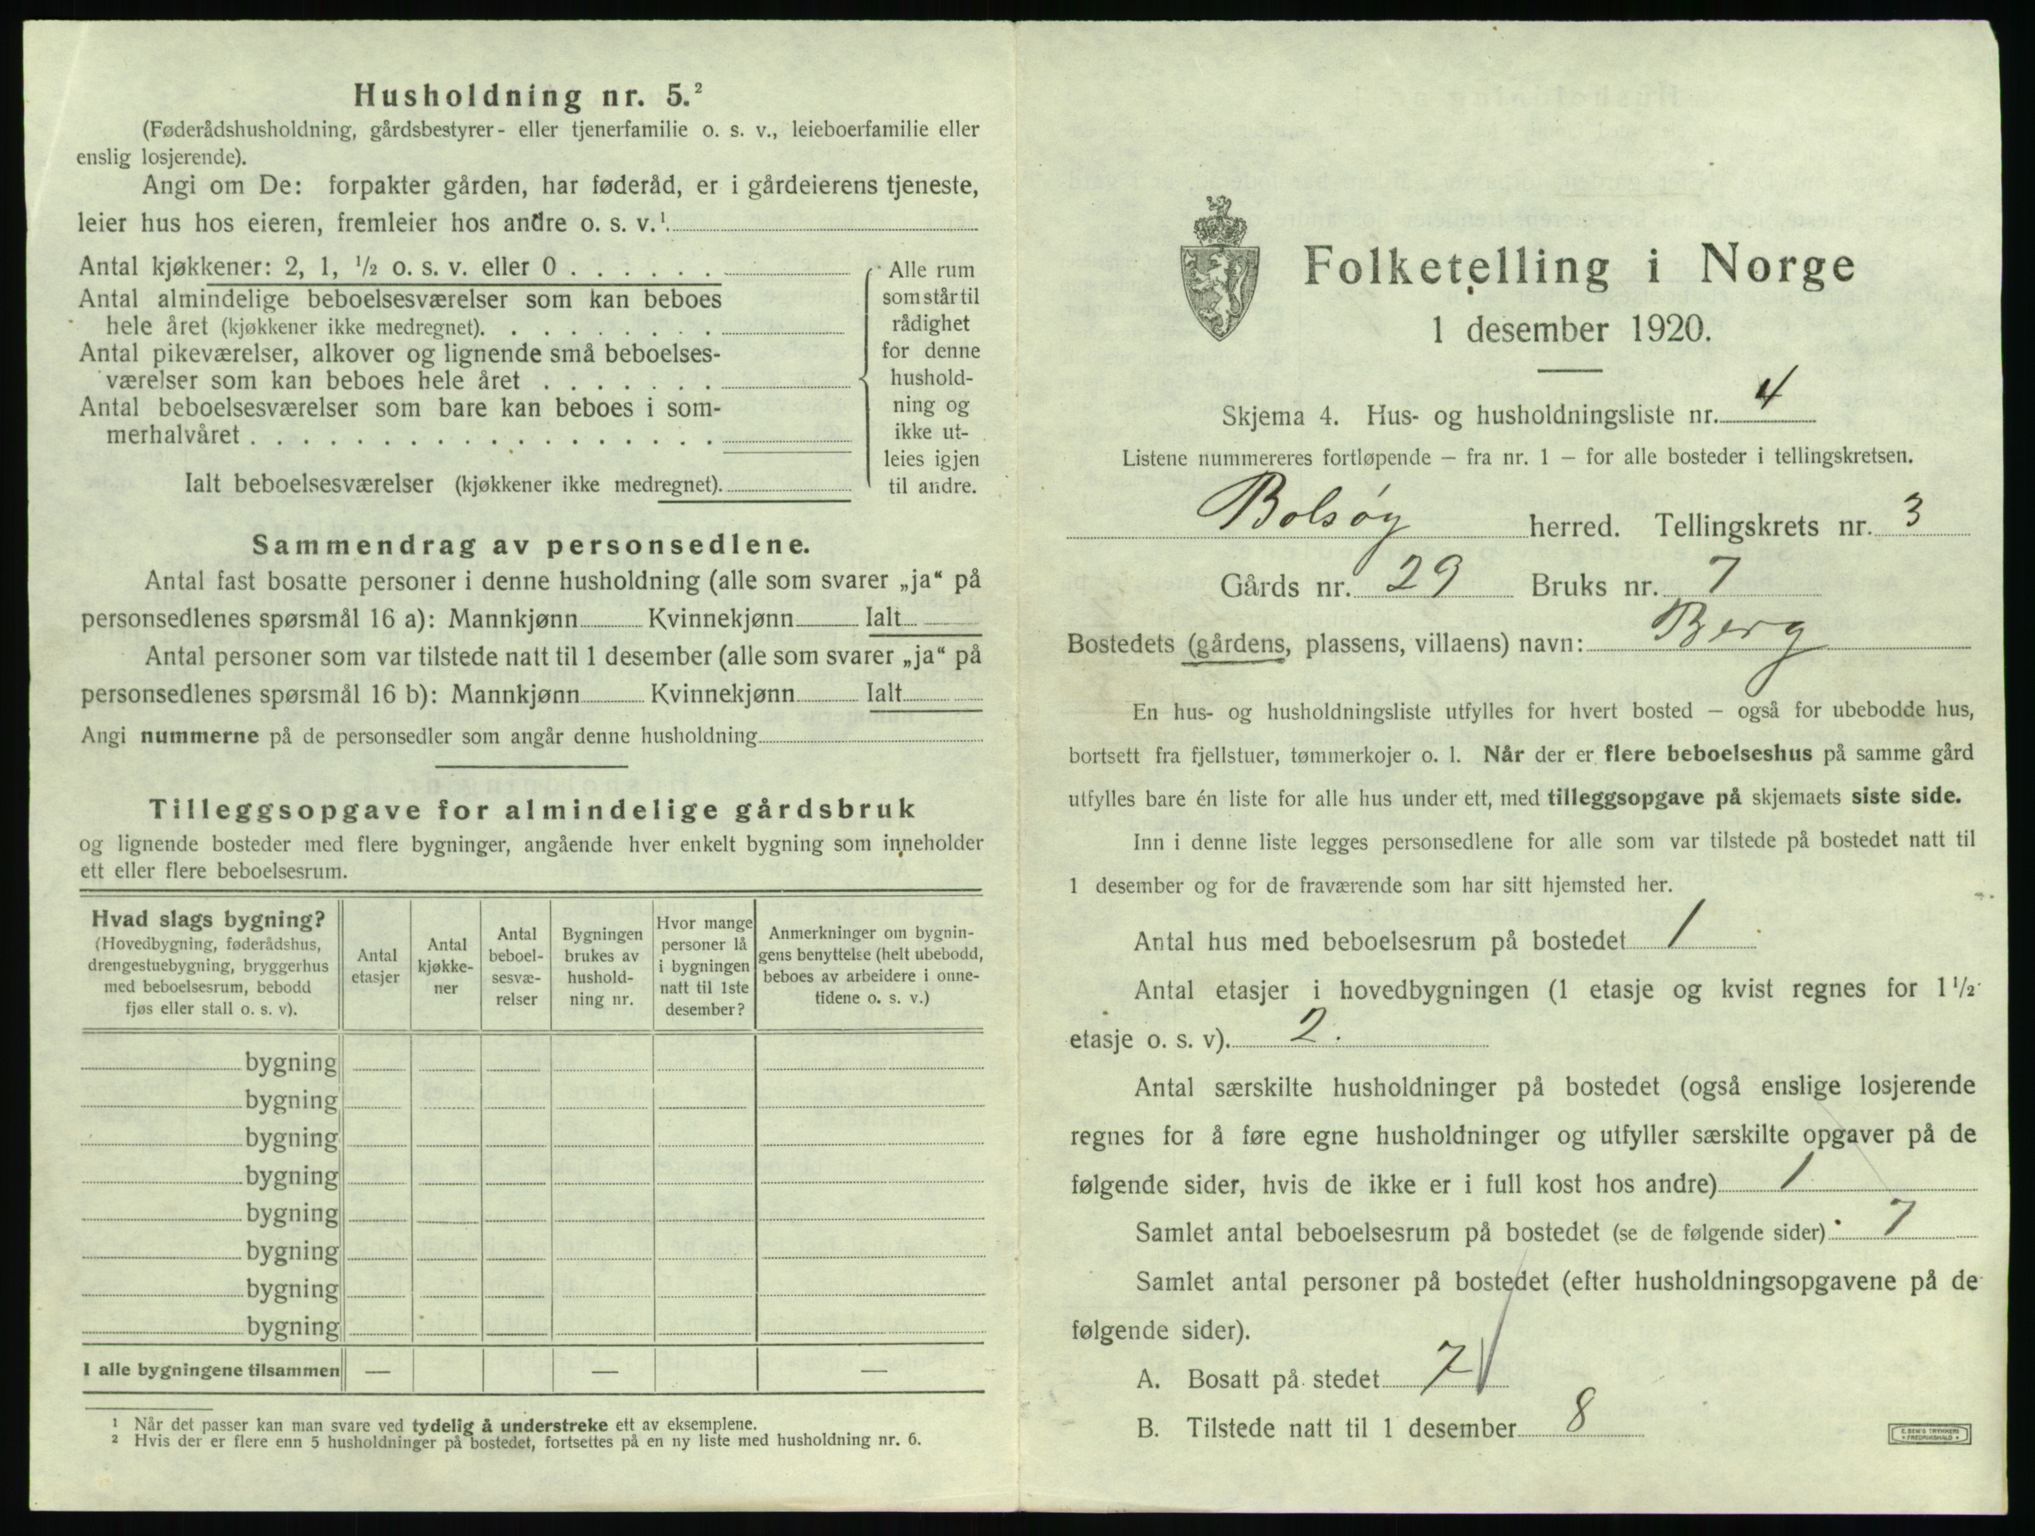 Husholdning nr. 5.²
(Føderådshusholdning, gårdsbestyrer- eller tjenerfamilie o. s. v., leieboerfamilie eller
enslig losjerende).
Angi om De: forpakter gården, har føderåd, er i gårdeierens tjeneste,
leier hus hos eieren, fremleier hos andre o. s. v.¹
Antal kjøkkener: 2, 1, ½ o. s. v. eller 0 . . . . . .
Antal almindelige beboelsesværelser som kan beboes
hele året (kjøkkener ikke medregnet). . . . . . . . .
Antal pikeværelser, alkover og lignende små beboelses-
værelser som kan beboes hele året . . . . . . .
Antal beboelsesværelser som bare kan beboes i som-
merhalvåret . . . . . . . . . . . . . . . . . .
Ialt beboelsesværelser (kjøkkener ikke medregnet).
Alle rum
som står til
rådighet
for denne
hushold-
ning og
ikke ut-
leies igjen
til andre.
Sammendrag av personsedlene.
Antal fast bosatte personer i denne husholdning (alle som svarer „ja“ på
personsedlenes spørsmål 16 a): Mannkjønn Kvinnekjønn Ialt
Antal personer som var tilstede natt til 1 desember (alle som svarer „ja“ på
personsedlenes spørsmål 16 b): Mannkjønn Kvinnekjønn Ialt
Angi nummerne på de personsedler som angår denne husholdning
Tilleggsopgave for almindelige gårdsbruk
og lignende bosteder med flere bygninger, angående hver enkelt bygning som inneholder
ett eller flere beboelsesrum.
Hvad slags bygning?
(Hovedbygning, føderådshus,
drengestuebygning, bryggerhus
med beboelsesrum, bebodd
fjøs eller stall o. s. v).
Antal
etasjer
Antal
kjøkke-
ner
Antal
beboel-
sesvæ-
relser
Bygningen
brukes av
hushold-
ning nr.
Hvor mange
personer lå
i bygningen
natt til 1ste
desember?
Anmerkninger om bygnin-
gens benyttelse (helt ubebodd,
beboes av arbeidere i onne-
tidene o. s. v.)
bygning
bygning
bygning
bygning
bygning
bygning
bygning
bygning
I alle bygningene tilsammen — — —
¹ Når det passer kan man svare ved tydelig å understreke ett av eksemplene.
² Hvis der er flere enn 5 husholdninger på bostedet, fortsettes på en ny liste med husholdning nr. 6.
Folketelling i Norge
1 desember 1920.
Skjema 4. Hus- og husholdningsliste nr. 4
Listene nummereres fortløpende – fra nr. 1 – for alle bosteder i tellingskretsen.
Bolsøy herred. Tellingskrets nr. 3
Gårds nr. 29 Bruks nr. 7
Bostedets (gårdens, plassens, villaens) navn: Berg
En hus- og husholdningsliste utfylles for hvert bosted – også for ubebodde hus,
bortsett fra fjellstuer, tømmerkojer o. l. Når der er flere beboelseshus på samme gård
utfylles bare én liste for alle hus under ett, med tilleggsopgave på skjemaets siste side.
Inn i denne liste legges personsedlene for alle som var tilstede på bostedet natt til
1 desember og for de fraværende som har sitt hjemsted her.
Antal hus med beboelsesrum på bostedet 1
Antal etasjer i hovedbygningen (1 etasje og kvist regnes for 1½
etasje o. s. v). 2.
Antal særskilte husholdninger på bostedet (også enslige losjerende
regnes for å føre egne husholdninger og utfyller særskilte opgaver på de
følgende sider, hvis de ikke er i full kost hos andre) 1
Samlet antal beboelsesrum på bostedet (se de følgende sider) 7
Samlet antal personer på bostedet (efter husholdningsopgavene på de
følgende sider).
A. Bosatt på stedet 7
B. Tilstede natt til 1 desember 8
E. SEM'S TRYKKERI
FREDRIKSHALD